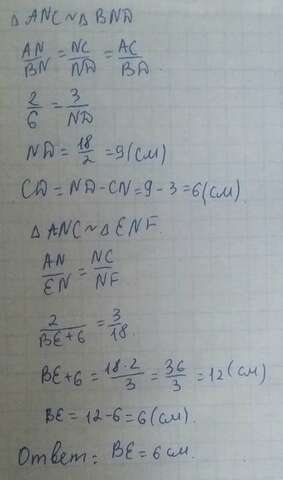 △ANC ~ △BND
AN/BN = NC/ND = AC/BD
2/6 = 3/ND
ND = 18/2 = 9(см)
CD = ND - CN = 9 - 3 = 6(см)
△ANC ~ △ENF
AN/EN = NC/NF
2/BE+6 = 3/18
BE+6 = 18·2/3 = 36/3 = 12(см)
BE = 12-6 = 6(см).
Ответ: BE = 6 см.